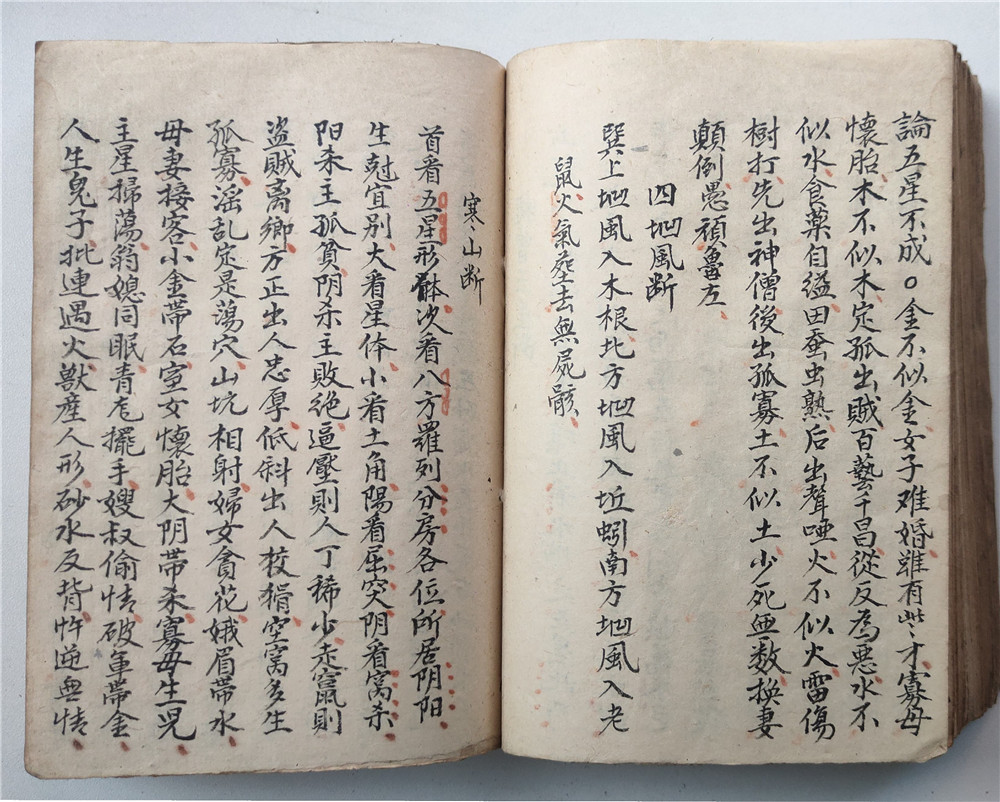 論五星不成○金不似金女子难婚雖有些々才寡母
懷胎木不似木定孤出賊百藝千昌從反為悪水不
似水食藥自縊田蚕虫熟后出聾啞火不似火雷傷
樹打先出神僧後出孤寡土不似土少死無数換妻
顛倒愚頑魯庅
四地風断
巽上地風入木根北方地風入坵蚓南方地風入老
鼠火氣塟去無屍骸
寒山断
首看五星形体次看八方羅列分房各位所居阴阳
生尅宜别大看星体小看土角陽看屈突阴看窝杀
阳杀主孤贫阴杀主败绝逼壓則人丁稀少走竄則
盗賊离鄉方正出人忠厚低斜出人狡猾空窝多生
孤寡淫乱定是蕩穴山坑相射婦女貪花娥眉帶水
毋妻接客小金帶石室女懷胎大阴帶杀寡毋生児
主星掃蕩翁媳同眠青龙擺手嫂叔偷情破軍帶金
人生鬼子批連遇火獸産人形砂水反背忤逆無情